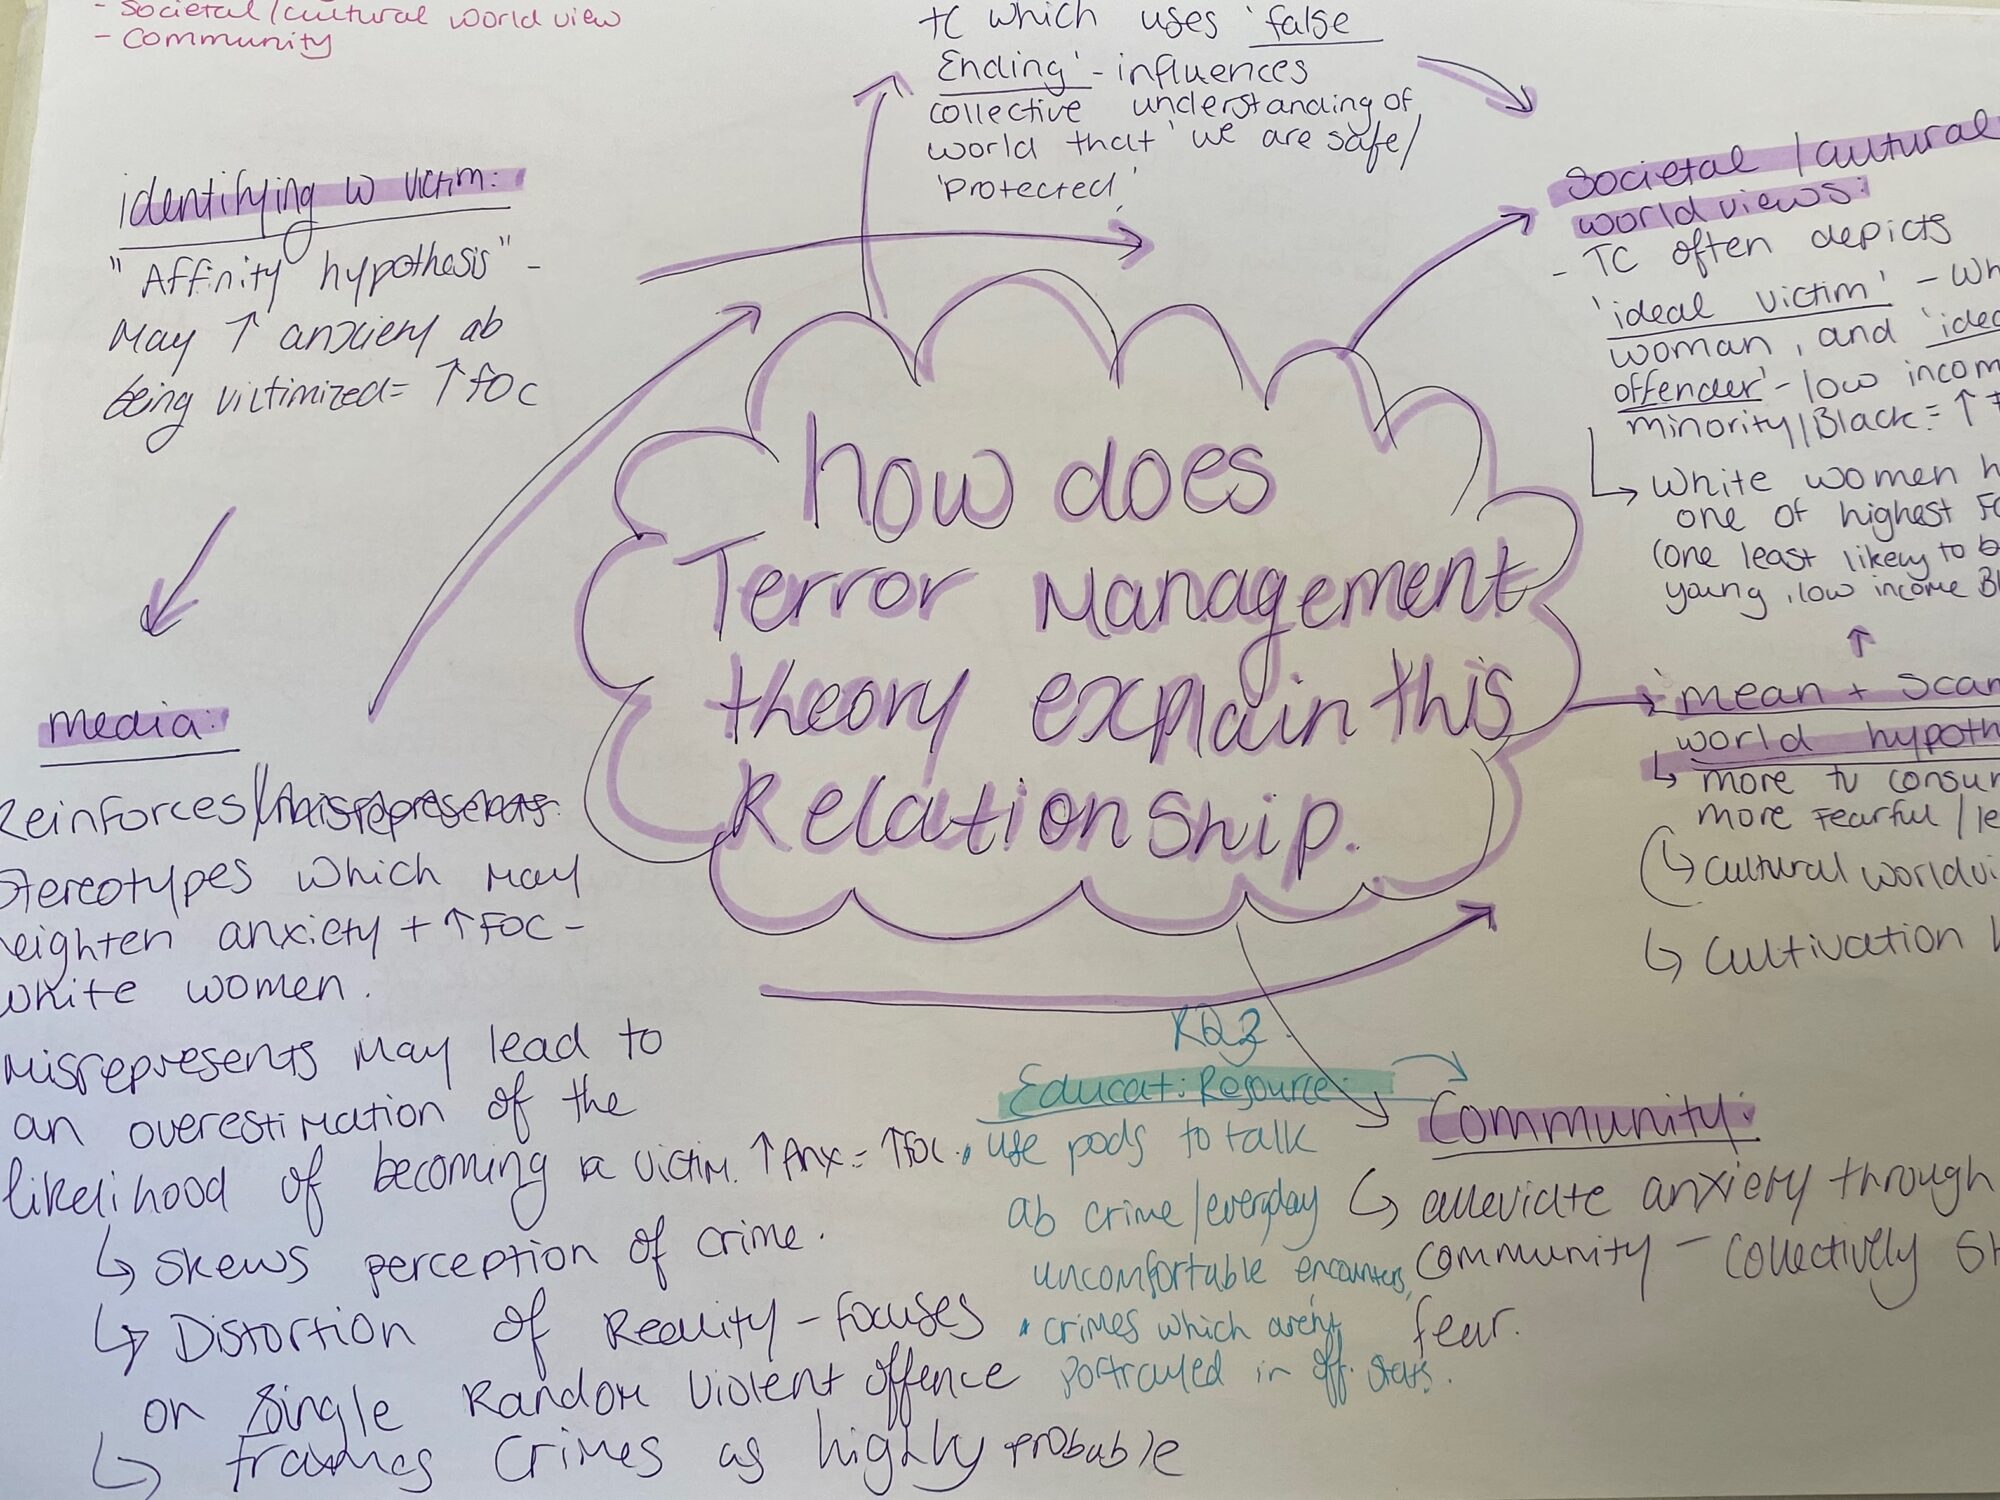 - Societal/cultural world view
- Community
TC which uses 'false
Ending' - influences
collective understanding of
world that 'we are safe/
'protected,'
identifying w victim:
"Affinity hypothesis" -
May ↑ anxiety ab
being victimized = ↑ FOC
Societal / cultural
world views:
- TC often depicts
'ideal victim' -
woman, and
offender' - low
minority/Black = ↑
↳ White women
one of highest
(one least likely to
young, low income
how does
Terror Management
theory explain this
Relationship.
↑
'mean +
world
↳ more tv
more fearful /
(↳ cultural
↳ cultivation
media:
Reinforces/
stereotypes which may
heighten anxiety + ↑ FOC -
white women.
misrepresents may lead to
an overestimation of the
likelihood of becoming a victim. ↑ Anx = ↑ FOC.
↳ Skews perception of crime.
↳ Distortion of Reality - focuses
on Single Random violent offence
↳ frames crimes as highly probable
Educat: Resource:
• use pods to talk
ab crime/everyday
uncomfortable encounters,
• crimes which aren't
portrayed in off. stats.
Community:
↳ alleviate anxiety through
community - collectively
fear.